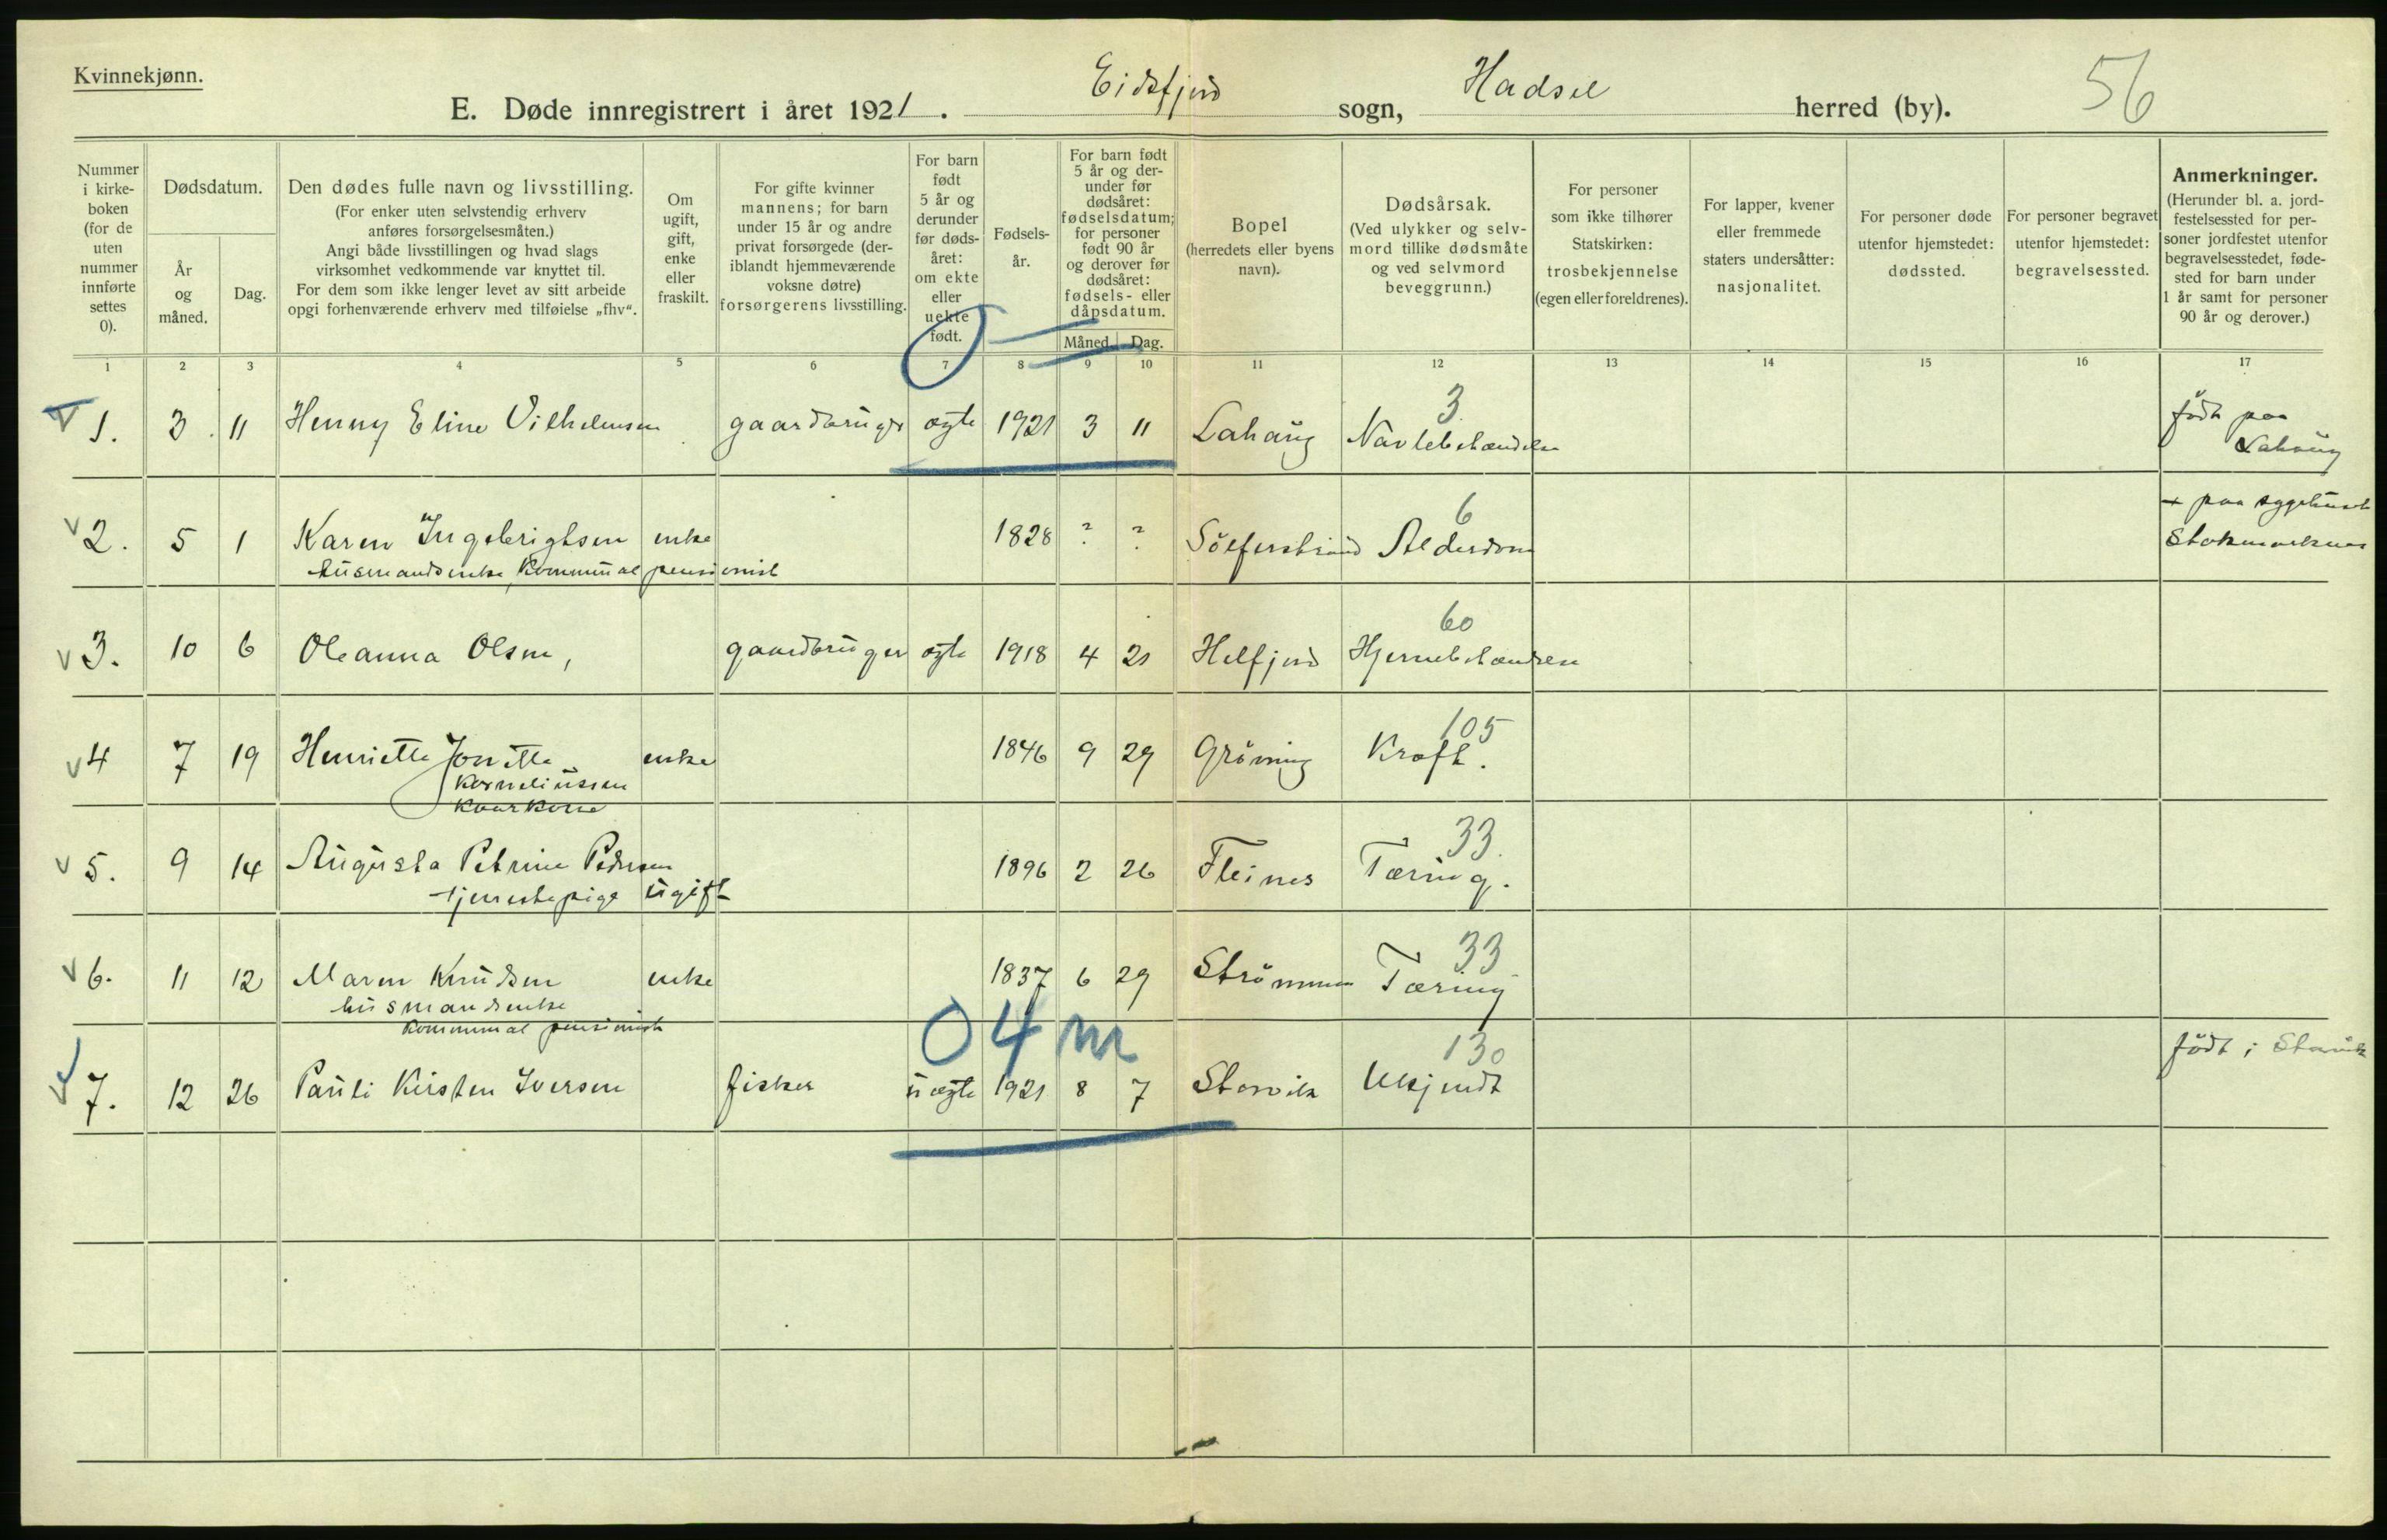 Kvinnekjønn.
E. Døde innregistrert i året 1921. Eidsfjord sogn, Hadsel herred (by).
56
Nummer i kirke-
boken
(for de
uten
nummer
innførte
settes
0).
Dødsdatum.
År
og
måned.
Dag.
Den dødes fulle navn og livsstilling.
(For enker uten selvstendig erhverv
anføres forsørgelsesmåten.)
Angi både livsstillingen og hvad slags
virksomhet vedkommende var knyttet til.
For dem som ikke lenger levet av sitt arbeide
opgi forhenværende erhverv med tilføielse „fhv“.
Om
ugift,
gift,
enke
eller
fraskilt.
For gifte kvinner
mannens; for barn
under 15 år og andre
privat forsørgede (der-
iblandt hjemmeværende
voksne døtre)
forsørgerens livsstilling.
For barn
født
5 år og
derunder
før døds-
året:
om ekte
eller
uekte
født.
Fødsels-
år.
For barn født
5 år og der-
under før
dødsåret:
fødselsdatum;
for personer
født 90 år
og derover før
dødsåret:
fødsels- eller
dåpsdatum.
Måned. Dag.
Bopel
(herredets eller byens
navn).
Dødsårsak.
(Ved ulykker og selv-
mord tillike dødsmåte
og ved selvmord
beveggrunn.)
For personer
som ikke tilhører
Statskirken:
trosbekjennelse
(egen eller foreldrenes).
For lapper, kvener
eller fremmede
staters undersåtter:
nasjonalitet.
For personer døde
utenfor hjemstedet:
dødssted.
For personer begravet
utenfor hjemstedet:
begravelsessted.
Anmerkninger.
(Herunder bl. a. jord-
festelsessted for per-
soner jordfestet utenfor
begravelsesstedet, føde-
sted for barn under
1 år samt for personer
90 år og derover.)
1 2 3 4 5 6 7 8 9 10 11 12 13 14 15 16 17
3
1. 3 11 Henny Eline Vilhelmsen gaardbruger ægte 1921 3 11 Lahaug Navlebehændelse født paa
Lahaug
6
2. 5 1 Karen Ingebrigtsen enke 1828 ? ? Alderdom + paa sygehuset
husmandsenke, kommunal pensionist Stokmarknes
60
3. 10 6 Oleanna Olsen, gaardbruger ægte 1918 4 21 Helfjord
105
4 7 19 Henriette Jonette enke 1846 9 29 Grönning Kræft.
Korneliussen
Kaarkone
33.
5. 9 14 Augusta Petrine Pedersen 1896 2 26 Fleines Tæring.
tjenestepige ugift
33
6. 11 12 Maren Knudsen enke 1837 6 29 Strömmen Tæring
husmandsenke
kommunal pensionist
04 m
130
7. 12 26 Pauli Kirsten Iversen fisker uægte 1921 8 7 Storvik Ukjendt født i Storvik